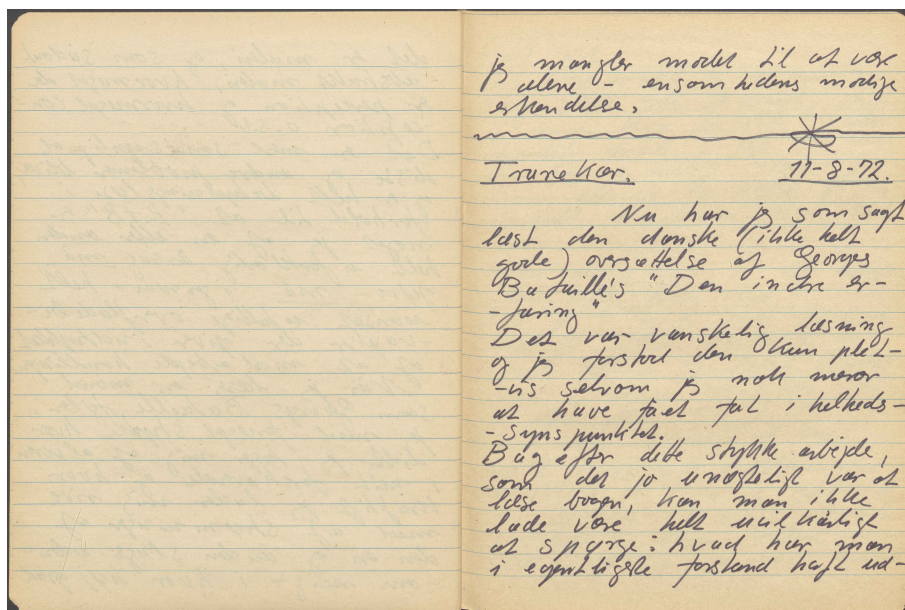 jeg mangler modet til at være
alene – ensomhedens modige
erkendelse.
Tranekær. 11-8-72.
Nu har jeg som sagt
læst den danske (ikke helt
gode) oversættelse af Georges
Bataille's "Den indre er-
-faring"
Det var vanskelig læsning
og jeg forstod den kun plet-
-vis selvom jeg nok mener
at have fået fat i helheds-
-synspunktet.
Bag efter dette stykke arbejde,
som det jo unægteligt var at
læse bogen, kan man ikke
lade være helt uvilkårligt
at spørge: hvad har man
i egentligste forstand haft ud-